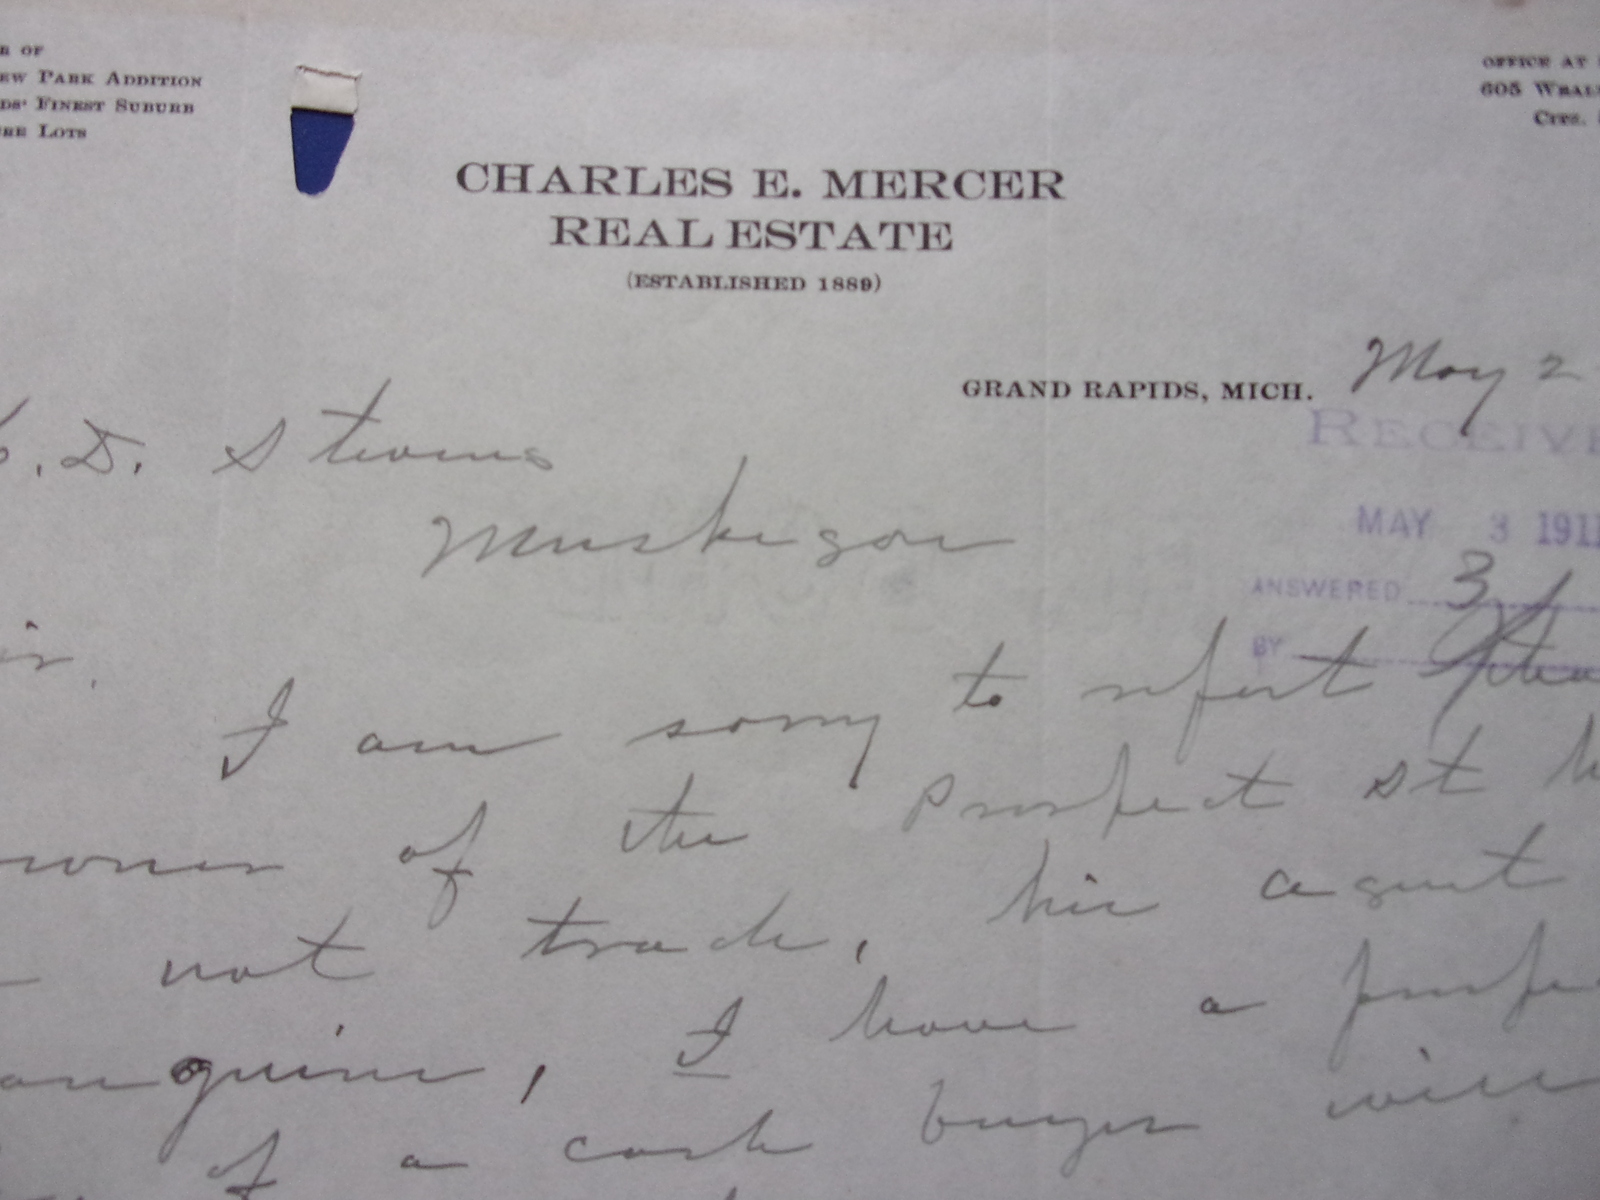 R OF
EW PARK ADDITION
DS' FINEST SUBURB
RE LOTS
OFFICE AT
605 WEAL
CITS.
CHARLES E. MERCER
REAL ESTATE
(ESTABLISHED 1889)
GRAND RAPIDS, MICH. May 2
RECEIVE
MAY 3 1911
ANSWERED 3
BY
. D. Stevens
Muskegon
ir.
I am sorry to report
owner of the Prospect st h
not trade, his agent
anguine, I have a prospe
of a cash buyer will